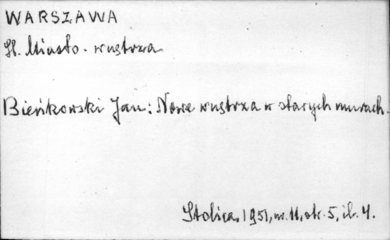 WARSZAWA
St. Miasto - wnętrza
Bieńkowski Jan: Nowe wnętrza w starych murach.
Stolica, 1951, nr. 11, str. 5, il. 4.